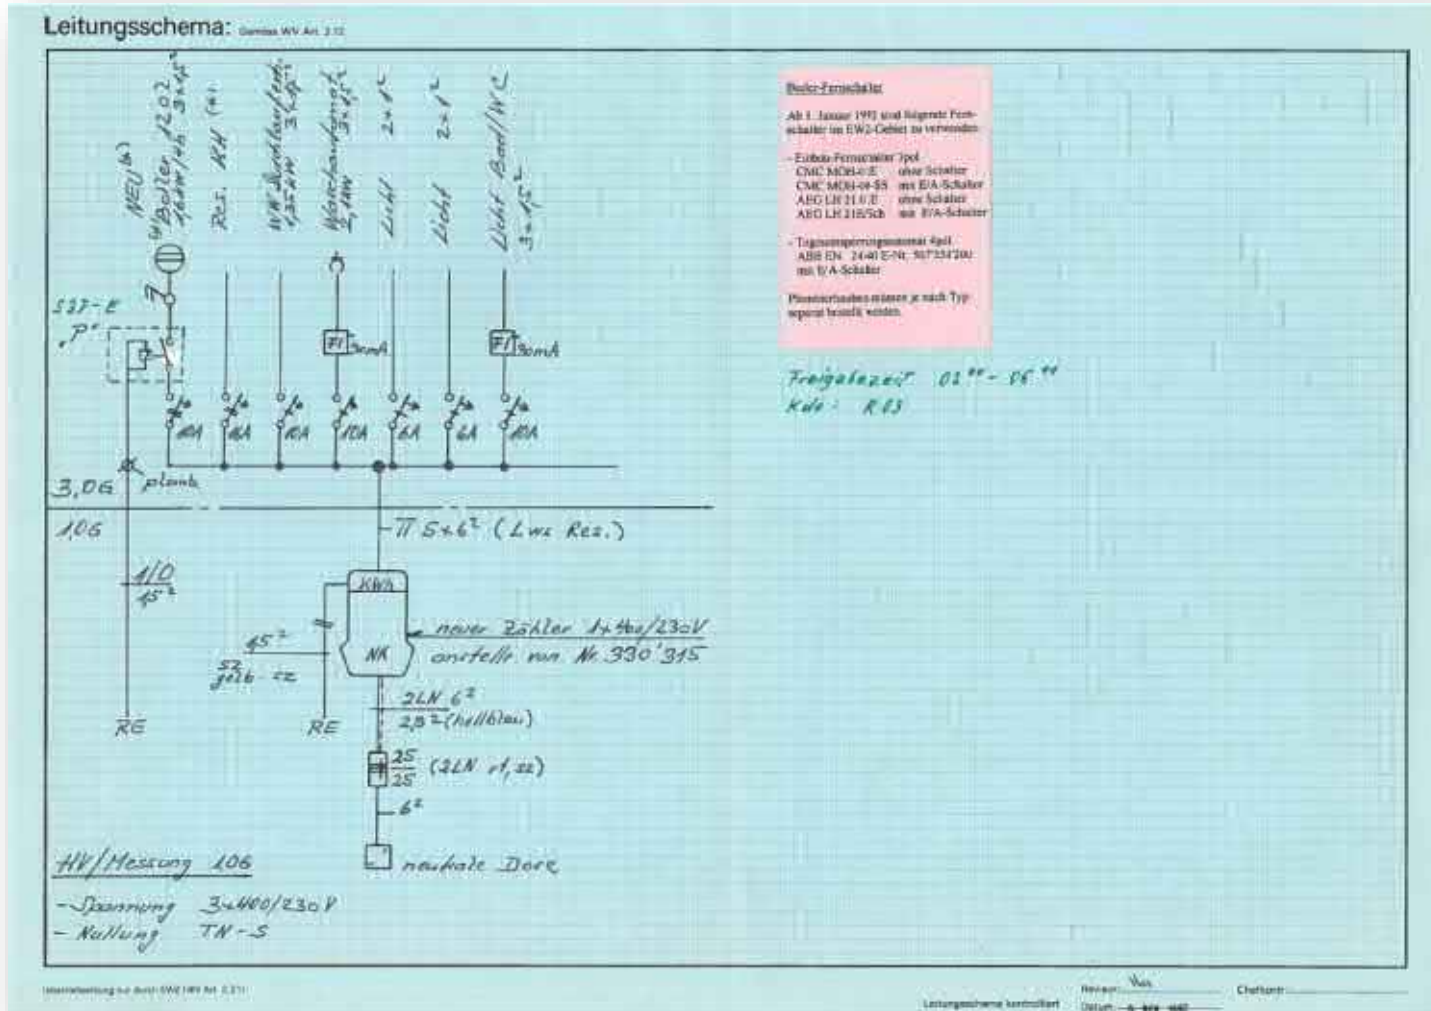 Leitungsschema: Gemäss WV Art. 2.12
NEU
Boiler 120 l
1,6kW/4h 3x1,5²
Res. KH
WW Durchlauferh.
1,35kW 3x1,5²
Waschautomat
2,1kW 3x1,5²
Licht 2x1²
Licht 2x1²
Licht Bad/WC
3x1,5²
S37-E
"P"
FI 30mA
FI 30mA
10A 6A 10A 10A 6A 6A 10A
3.OG plomb.
1.OG
5x6² (Lws Res.)
1/0
1,5²
KWh
1,5²
sz
gelb-sz
NK
neuer Zähler 1x400/230V
anstelle von Nr. 330'315
RE
RE
2LN 6²
2,5² (hellblau)
25
25
(2LN rt, sz)
6²
neutrale Dose
HV/Messung 1OG
- Spannung 3x400/230V
- Nullung TN-S
Boiler-Fernschalter
Ab 1. Januar 1992 sind folgende Fern-
schalter im EWZ-Gebiet zu verwenden:
- Einbau-Fernschalter 3pol
CMC MOH-0/E ohne Schalter
CMC MOH-04-SS mit E/A-Schalter
AEG LH 21 0/E ohne Schalter
AEG LH 21E/Sch mit E/A-Schalter
4pol
ABB EN 24-40 E-Nr.
mit E/A-Schalter
müssen je nach Typ
separat bestellt werden.
Freigabezeit 02⁰⁰ - 06⁰⁰
Kdo: R 03
nur durch EWZ
Leitungsschema kontrolliert
Revisor:
Datum:
Chefkontr.